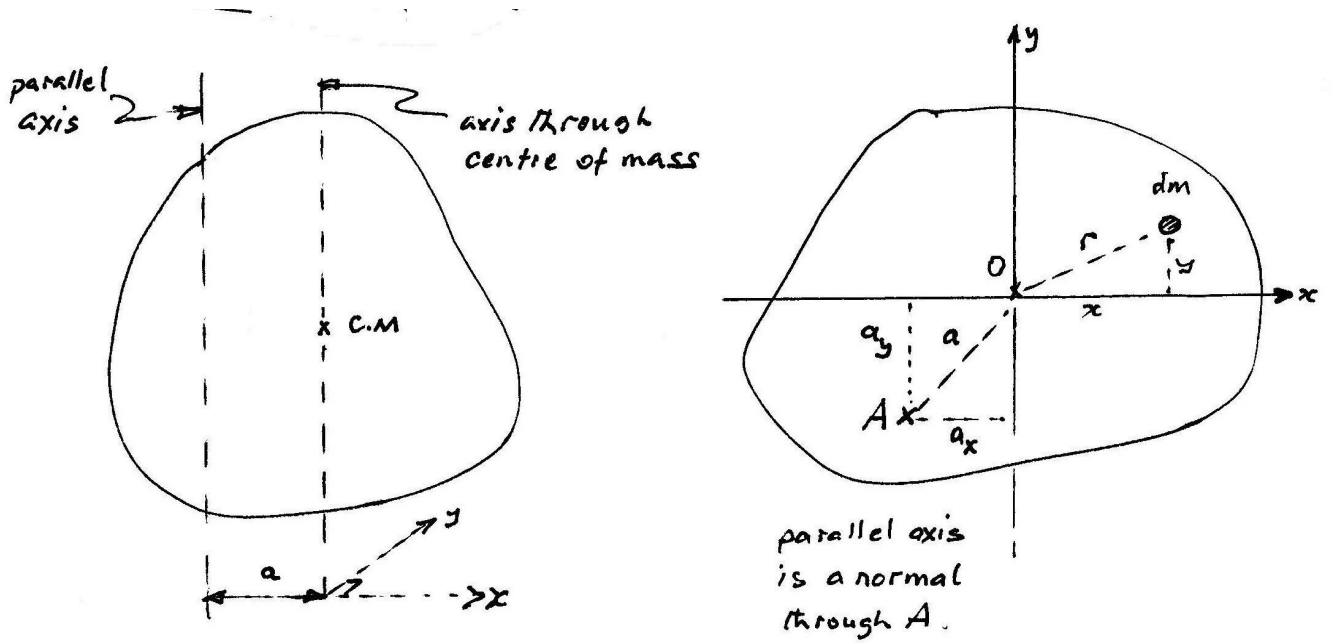 parallel
axis
axis through
centre of mass
C.M
y
a
x
y
dm
r
O
y
x
x
a_y
a
A
a_x
parallel axis
is a normal
through A.